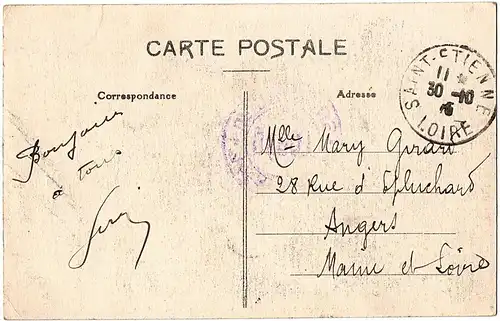 CARTE POSTALE
Correspondance
Adresse
SAINT-ETIENNE
11
30 -10
LOIRE
Bonjour
à tous
Mlle Mary Girard
28 Rue d'Epluchard
Angers
Maine et Loire